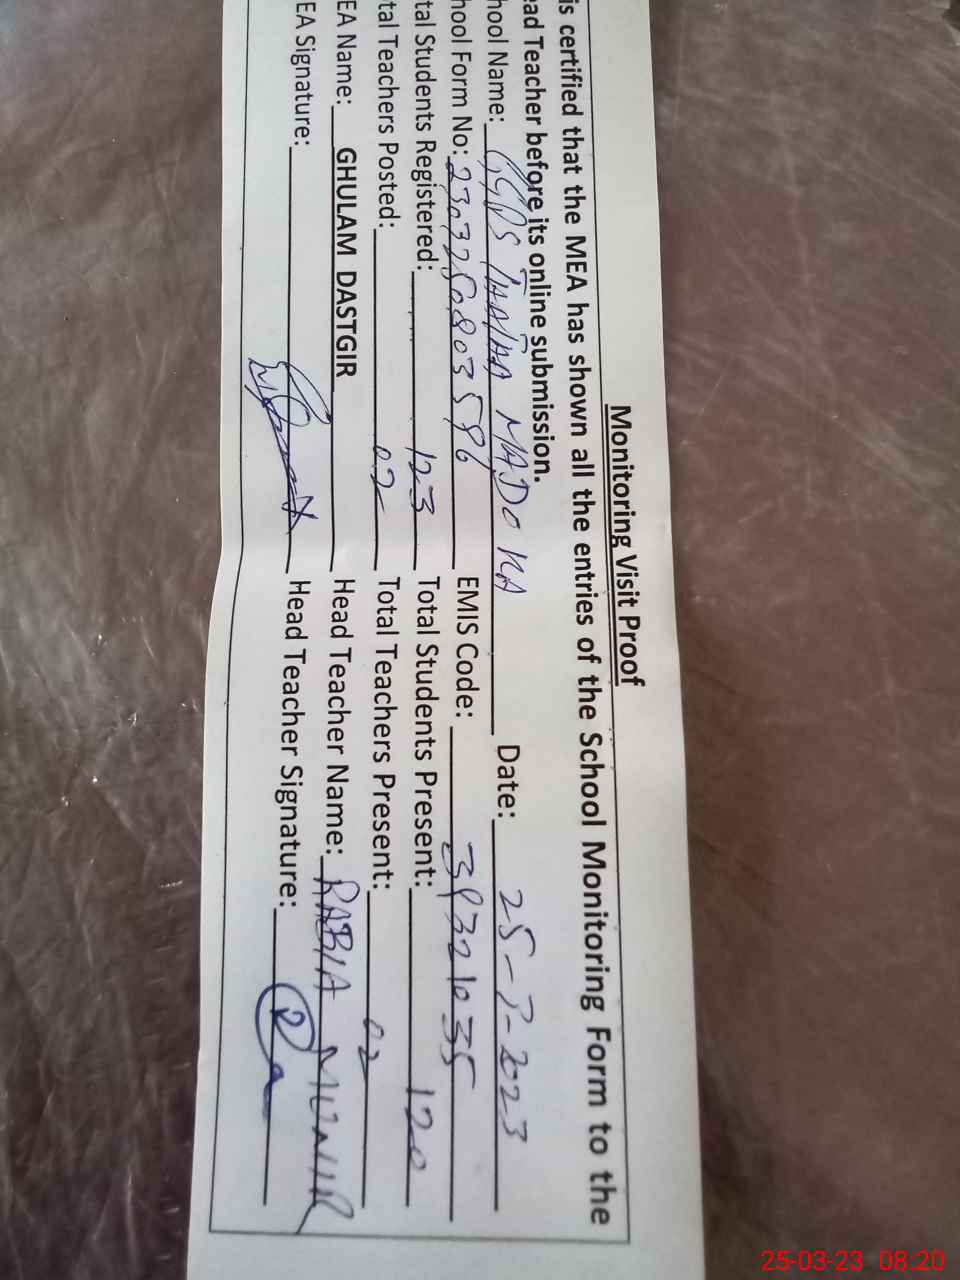 Monitoring Visit Proof
is certified that the MEA has shown all the entries of the School Monitoring Form to the
ead Teacher before its online submission.
hool Name: GGPS TAHAA MADOKA Date: 25-3-2023
hool Form No: 2303250803586 EMIS Code: 39321035
tal Students Registered: 123 Total Students Present: 120
tal Teachers Posted: 02 Total Teachers Present: 02
EA Name: GHULAM DASTGIR Head Teacher Name: RABIA MUNIR
EA Signature: Head Teacher Signature:
25-03-23 08:20